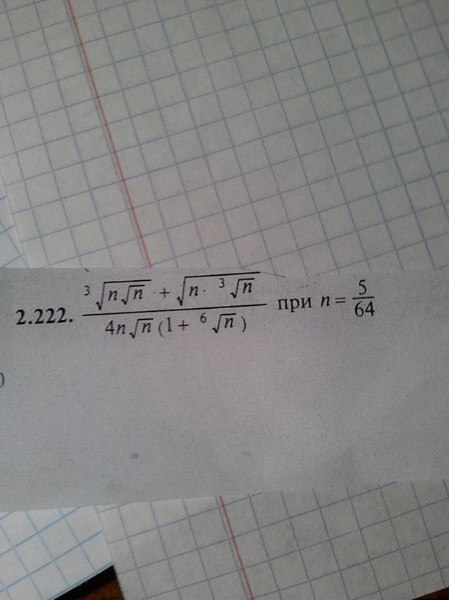 2.222. (∛(n√n) + √(n·∛n)) / (4n√n (1 + ⁶√n)) при n = 5/64
)